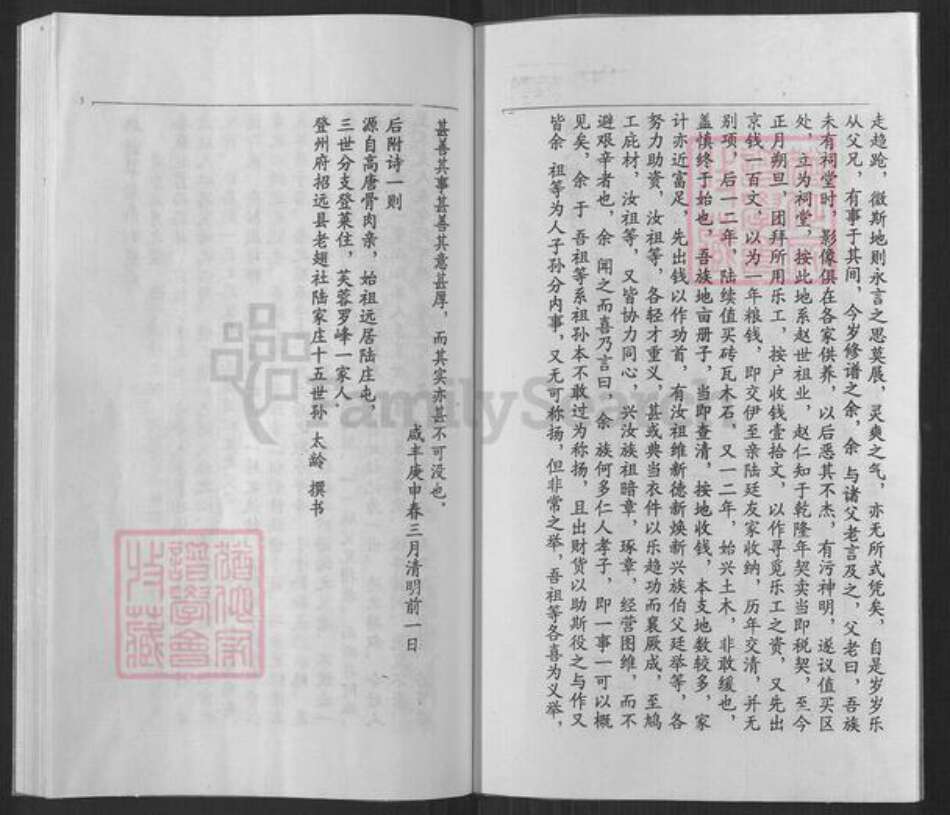 走趋跄，微斯地则永言之思莫展，灵爽之气，亦无所式凭矣，自是岁岁乐
从父兄，有事于其间，今岁修谱之余，余与诸父老言及之，父老曰，吾族
未有祠堂时，影像俱在各家供养，以后恶其不杰，有污神明，遂议值买区
处，立为祠堂，按此地系赵世祖业，赵仁知于乾隆年契卖当即税契，至今
正月朔旦，团拜所用乐工，按户收钱壹拾文，以作寻觅乐工之资，又先出
京钱一百文，以为一年粮钱，即交伊至亲陆廷友家收纳，历年交清，并无
别项，后一二年，陆续值买砖瓦木石，又一二年，始兴土木，非敢缓也，
盖慎终于始也，吾族地亩册子，当即查清，按地收钱，本支地数较多，家
计亦近富足，先出钱以作功首，有汝祖维新德新焕新兴族伯父廷举等，各
努力助资，汝祖等，各轻才重义，甚或典当衣件以乐趋功而襄厥成，至鸠
工庇材，汝祖等，又皆协力同心，兴汝族祖暗章，琢章，经营图维，而不
避艰辛者也，余闻之而喜乃言曰，余族何多仁人孝子，即一事一可以概
见矣，余于吾祖等系祖孙本不敢过为称扬，且出财货以助斯役之与作又
皆余祖等为人子孙分内事，又无可称扬，但非常之举，吾祖等各喜为义举，
甚善其事甚善其意甚厚，而其实亦甚不可没也，
咸丰庚申春三月清明前一日
后附诗一则
源自高唐骨肉亲，始祖远居陆庄屯，
三世分支登莱住，芙蓉罗峰一家人，
登州府招远县老翅社陆家庄十五世孙 太龄 撰书
FamilySearch
谱学会
收藏